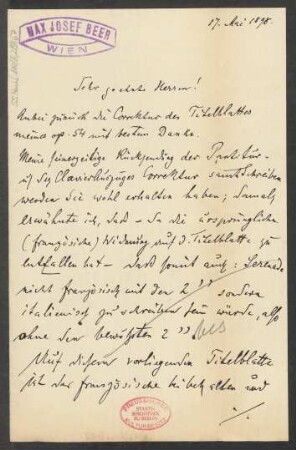 MAX JOSEF BEER
WIEN
17. Mai 1898.
Sehr geehrte Herren!
Anbei zurück die Correktur des Titelblattes
meines op. 54 mit bestem Danke.
Meine seinerzeitige Rücksendung der Partitur-
u. des Clavierauszuges Correktur sammt Schreiben
werden Sie wohl erhalten haben; damals
erwähnte ich, daß – da die ursprüngliche
(französische) Widmung auf d. Titelblatte zu
entfallen hat – daß somit auch: Serenade
nicht französisch mit den 2 " sondern
italienisch zu schreiben sein würde, also
ohne den bewußten 2 "
Auf diesem vorliegenden Titelblatte
ist das französische beibehalten und
./.